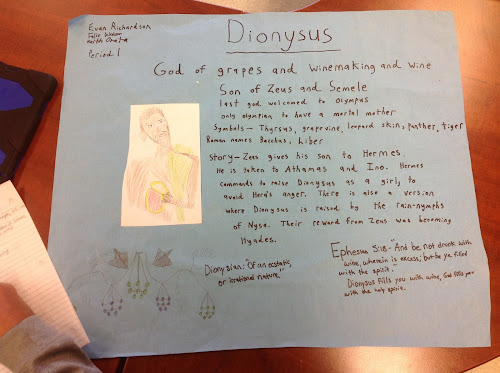 Evan Richardson
Period 1
Dionysus
God of grapes and winemaking and wine
Son of Zeus and Semele
last god welcomed to Olympus
only olympian to have a mortal mother
Symbols - Thyrsus, grapevine, leopard skin, panther, tiger
Roman names Bacchus, Liber
Story - Zeus gives his son to Hermes.
He is taken to Athamas and Ino. Hermes
commands to raise Dionysus as a girl, to
avoid Hera's anger. There is also a version
where Dionysus is raised by the rain-nymphs
of Nysa. Their reward from Zeus was becoming
Hyades.
Dionysian: "Of an ecstatic,
or irrational nature."
Ephesians 5:18 - "And be not drunk with
wine, wherein is excess; but be ye filled
with the spirit."
Dionysus fills you with wine, God fills you
with the holy spirit.